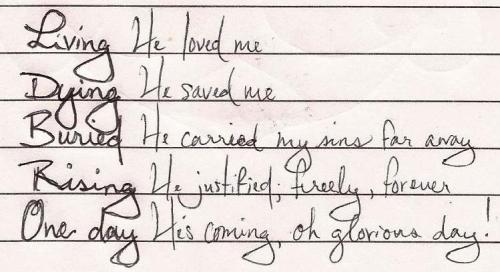 Living He loved me
Dying He saved me
Buried He carried my sins far away
Rising He justified, freely, forever
One day He's coming, oh glorious day!